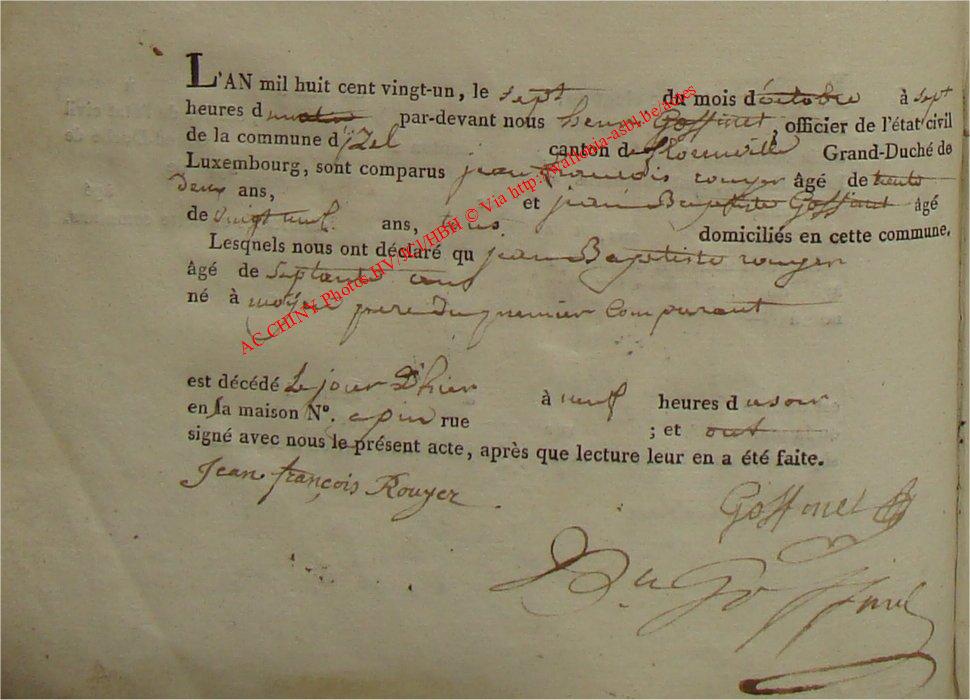 L'AN mil huit cent vingt-un, le sept du mois d'octobre à sept
heures d matin par-devant nous henri Goffinet, officier de l'état civil
de la commune d'izel canton de florenville Grand-Duché de
Luxembourg, sont comparus jean françois rouyer âgé de trente
deux ans, et jean Baptiste Goffinet âgé
de vingt neuf ans, domiciliés en cette commune.
Lesquels nous ont déclaré qu jean Baptiste rouyer
âgé de septante ans
né à moyen pere du premier comparant
est décédé le jour d'hier à neuf heures d u soir
en sa maison N°. rue ; et ont
signé avec nous le présent acte, après que lecture leur en a été faite.
Jean françois Rouyer
Goffinet
Goffinet
AC CHINY Photos HV/JCl/HBH © Via http://wallonia-asbl.be/actes